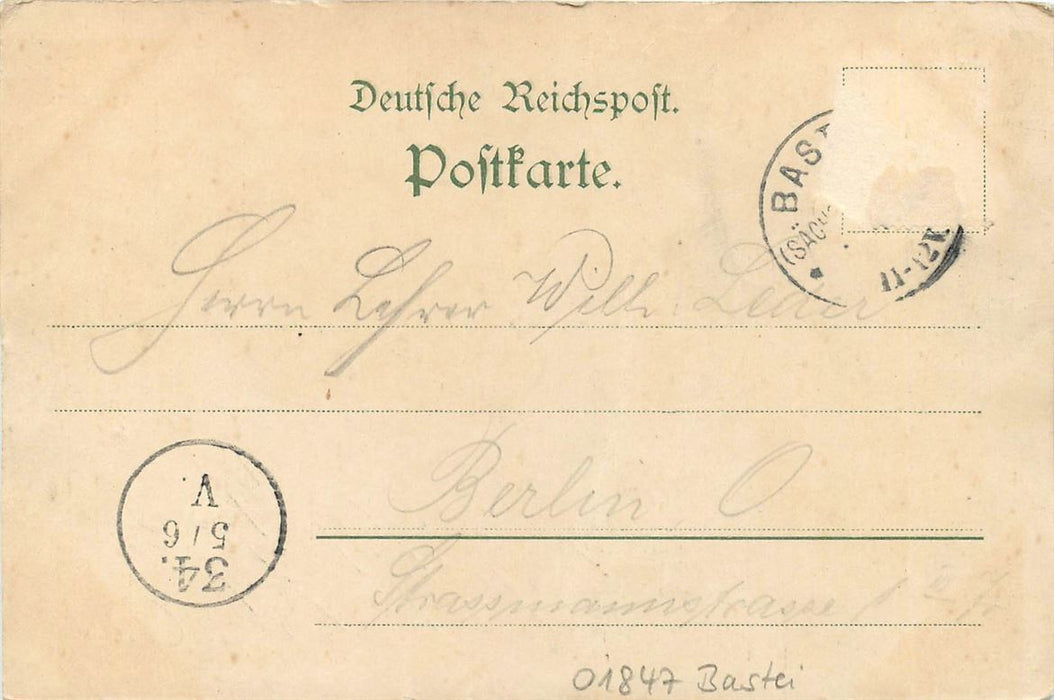 Deutsche Reichspost.
Postkarte.
BAS
(SÄCH
11-12V.
Herrn Lehrer Willi Leder
Berlin O
Strassmannstrasse 1
34.
5/6
V
01847 Bastei